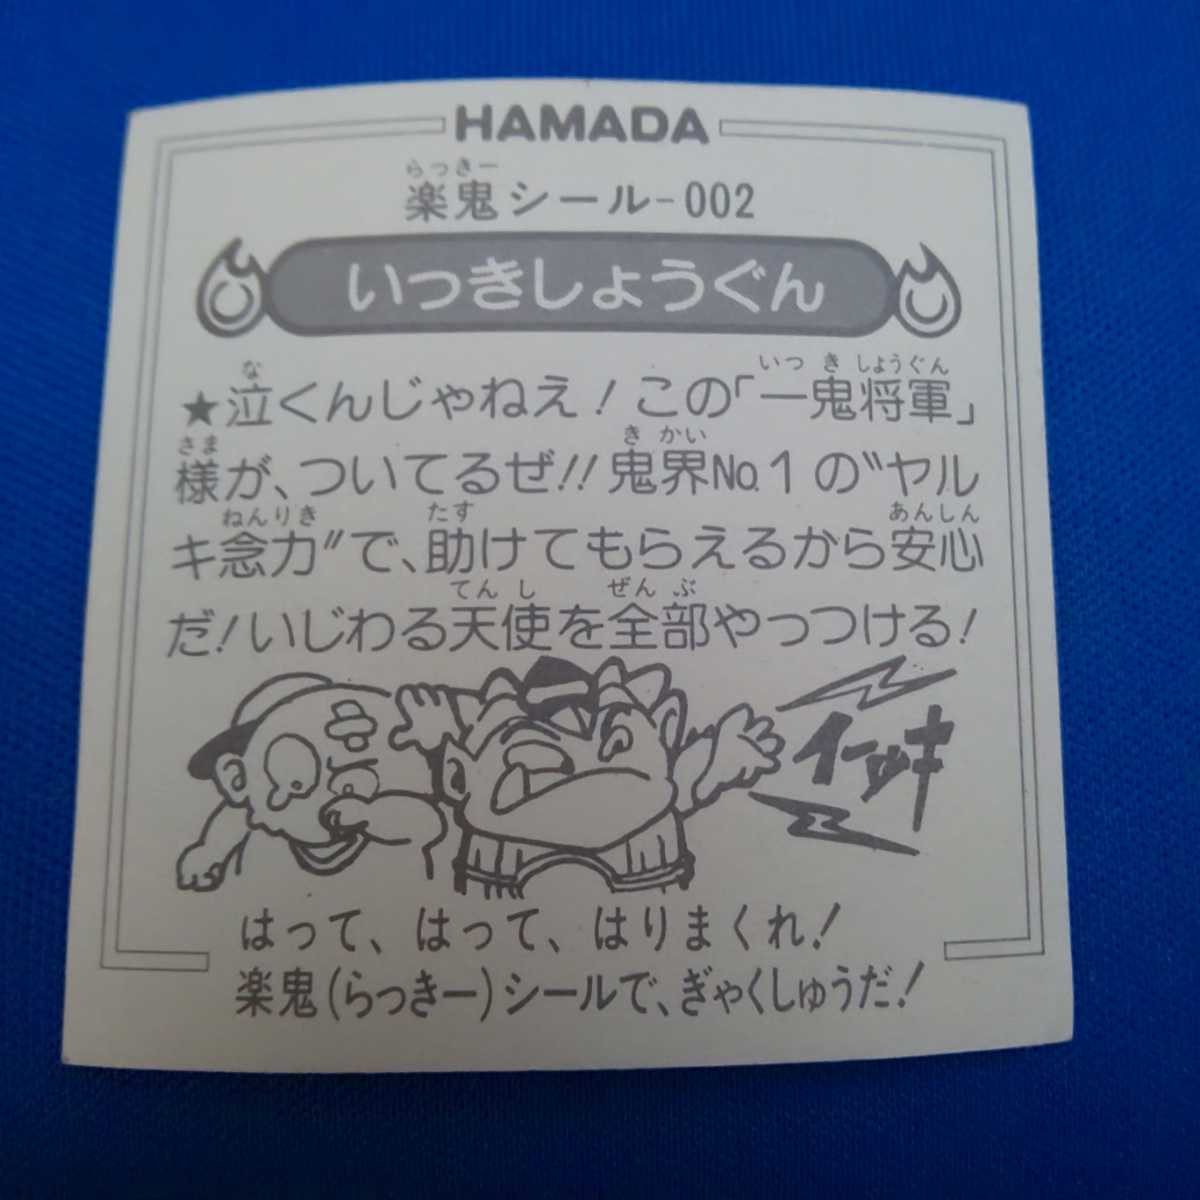 HAMADA
らっきー
楽鬼シール-002
いっきしょうぐん
な いつ き しょうぐん
★泣くんじゃねえ!この「一鬼将軍」
さま き かい
様が、ついてるぜ!!鬼界No.1の〝ヤル
ねんりき たす あんしん
キ念力〞で、助けてもらえるから安心
てん し ぜん ぶ
だ!いじわる天使を全部やっつける!
イーッキ
はって、はって、はりまくれ!
楽鬼(らっきー)シールで、ぎゃくしゅうだ!